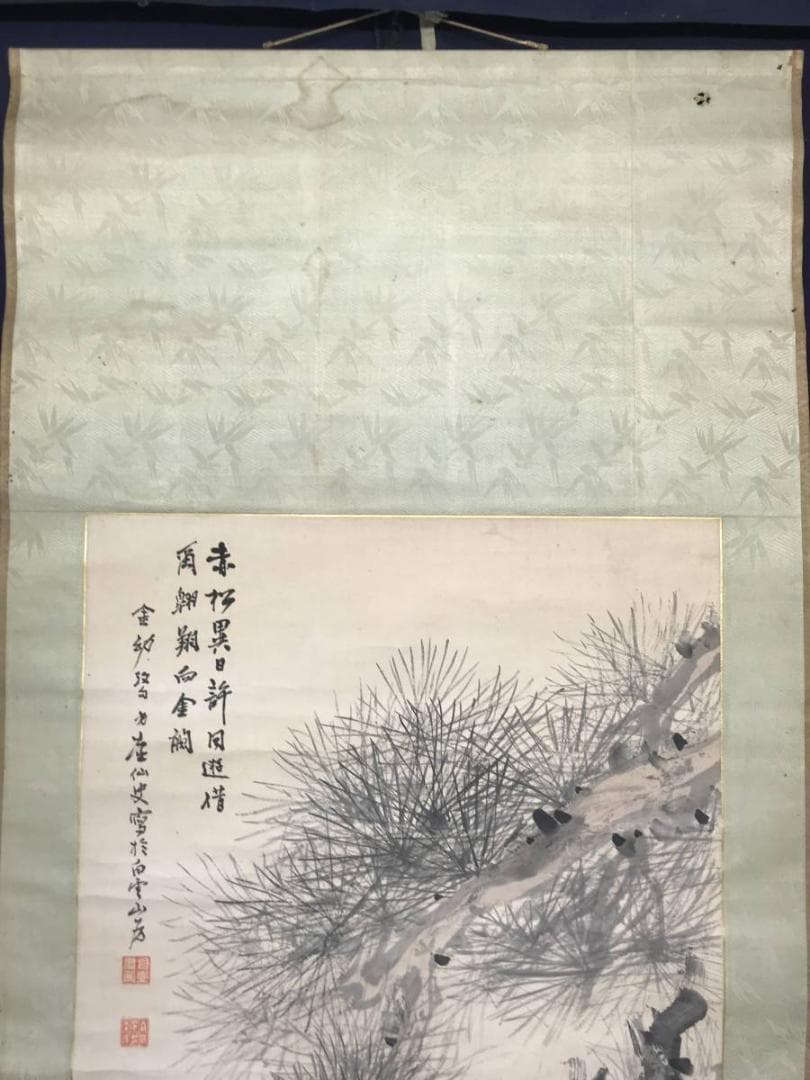 赤松異日許同遊借
爾翱翔向金闕
金幼孜句仙史寫於白雲山房